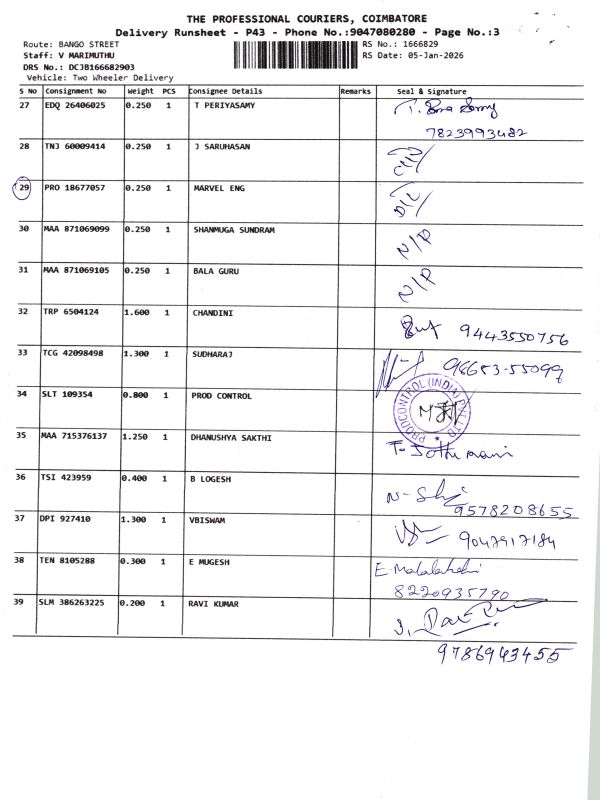 THE PROFESSIONAL COURIERS, COIMBATORE
Delivery Runsheet - P43 - Phone No.:9047080280 - Page No.:3
Route: BANGO STREET RS No.: 1666829
Staff: V MARIMUTHU RS Date: 05-Jan-2026
DRS No.: DCJB166682903
Vehicle: Two Wheeler Delivery
S No Consignment No Weight PCS Consignee Details Remarks Seal & Signature
27 EDQ 26406025 0.250 1 T PERIYASAMY
7823993482
28 TNJ 60009414 0.250 1 J SARUHASAN
29 PRO 18677057 0.250 1 MARVEL ENG D/L
30 MAA 871069099 0.250 1 SHANMUGA SUNDRAM N/P
31 MAA 871069105 0.250 1 BALA GURU N/P
32 TRP 6504124 1.600 1 CHANDINI 9443550756
33 TCG 42098498 1.300 1 SUDHARAJ 98653-55099
34 SLT 109354 0.800 1 PROD CONTROL PRODCONTROL (INDIA) PVT LTD
35 MAA 715376137 1.250 1 DHANUSHYA SAKTHI T- Jothimani
36 TSI 423959 0.400 1 B LOGESH
9578208655
37 DPI 927410 1.300 1 VBISWAM 9042917184
38 TEN 8105288 0.300 1 E MUGESH
8220935790
39 SLM 386263225 0.200 1 RAVI KUMAR
9786943455